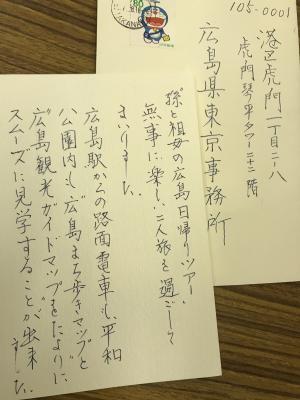 105-0001
港区虎ノ門一丁目二ー八
虎ノ門琴平タワー二十二階
広島県東京事務所
80
孫と祖母の広島日帰りツアー、
無事に楽しい二人旅を過ごして
まいりました。
広島駅からの路面電車も、平和
公園内も「広島まち歩きマップ」と
「広島観光ガイドマップ」をたよりに
スムーズに見学することが出来
ました。